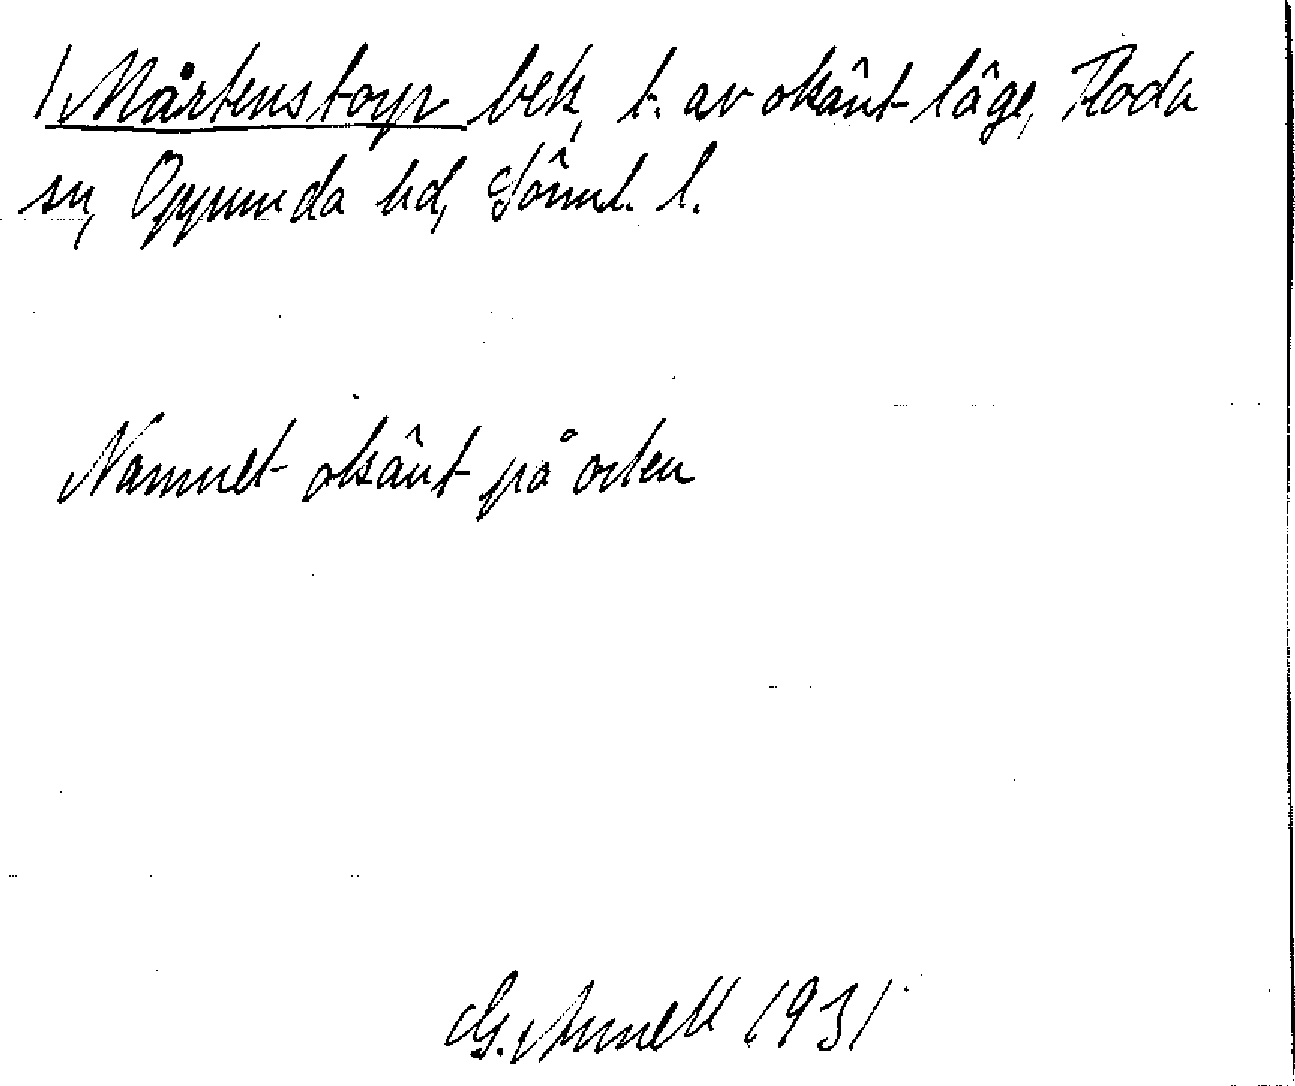 /Mårtenstorp bek, t. av okänt läge, Floda
sn, Oppunda hd, Sörml. l.
Namnet okänt på orten
G. Arnell 1931